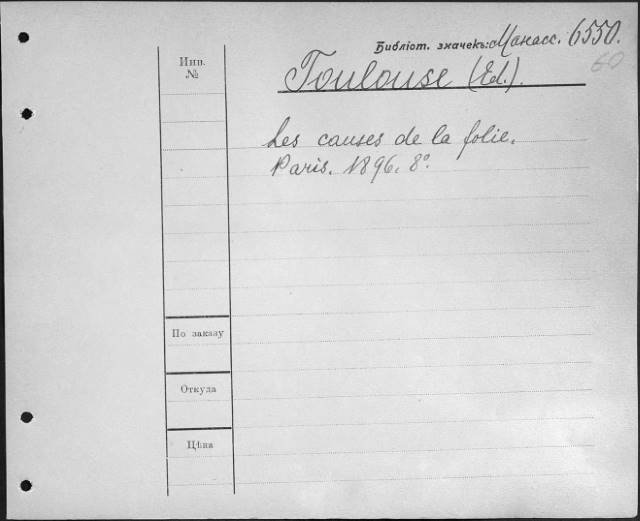 Библіот. значекъ: Манасс. 6550.
60
Инв.
№
Toulouse (Ed.).
Les causes de la folie.
Paris. 1896. 8°.
По заказу
Откуда
Цѣна